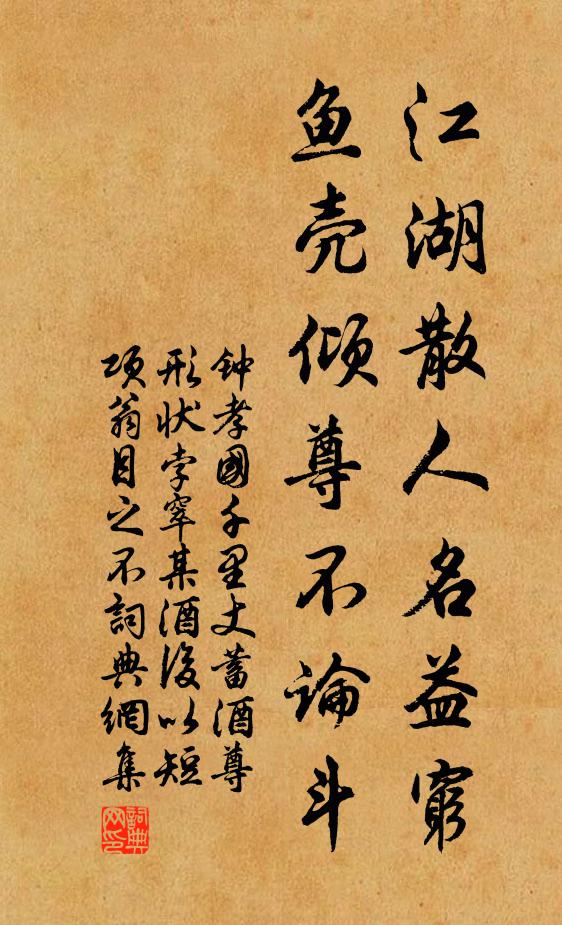 江湖散人名益窮
鱼壳倾尊不論斗
钟孝國千里丈蓄酒尊
形状孛窣某酒後以短
项翁目之不詞典網集
詞典网印